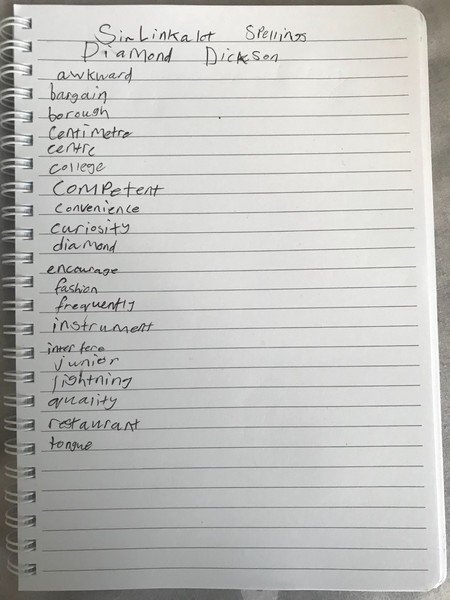 Sir Linkalot Spellings
Diamond Dickson
awkward
bargain
borough
centimetre
centre
college
competent
convenience
curiosity
diamond
encourage
fashion
frequently
instrument
interfere
junior
lightning
quality
restaurant
tongue